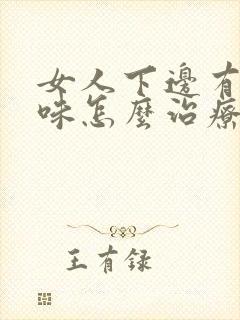 女人下邊有
味怎麼治療
王有録